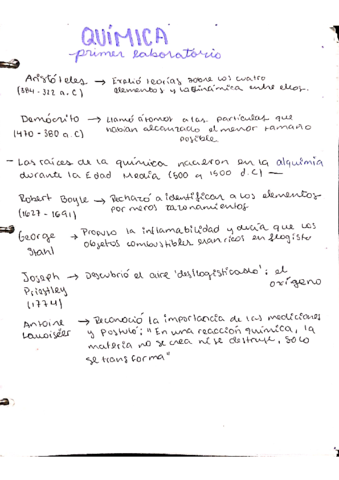 QUÍMICA
primer laboratorio
Aristóteles → Evaluó teorías sobre los cuatro
(384-312 a.C) elementos y la dinámica entre ellos.
Demócrito → Llamó átomos a las partículas que
(470-380 a.C) habían alcanzado el menor tamaño
posible
- Las raíces de la química nacieron en la alquimia
durante la Edad Media (500 a 1500 d.C) —
Robert Boyle → Rechazó a identificar a los elementos
(1627-1691) por meros razonamientos
George → Propuso la inflamabilidad y decía que los
Stahl objetos combustibles eran ricos en flogisto
Joseph → Descubrió el aire 'desflogisticado'; el
Priestley oxígeno
(1774)
Antoine → Reconoció la importancia de las mediciones
Lavoisier y Postuló; "En una reacción química, la
materia no se crea ni se destruye, solo
se transforma"